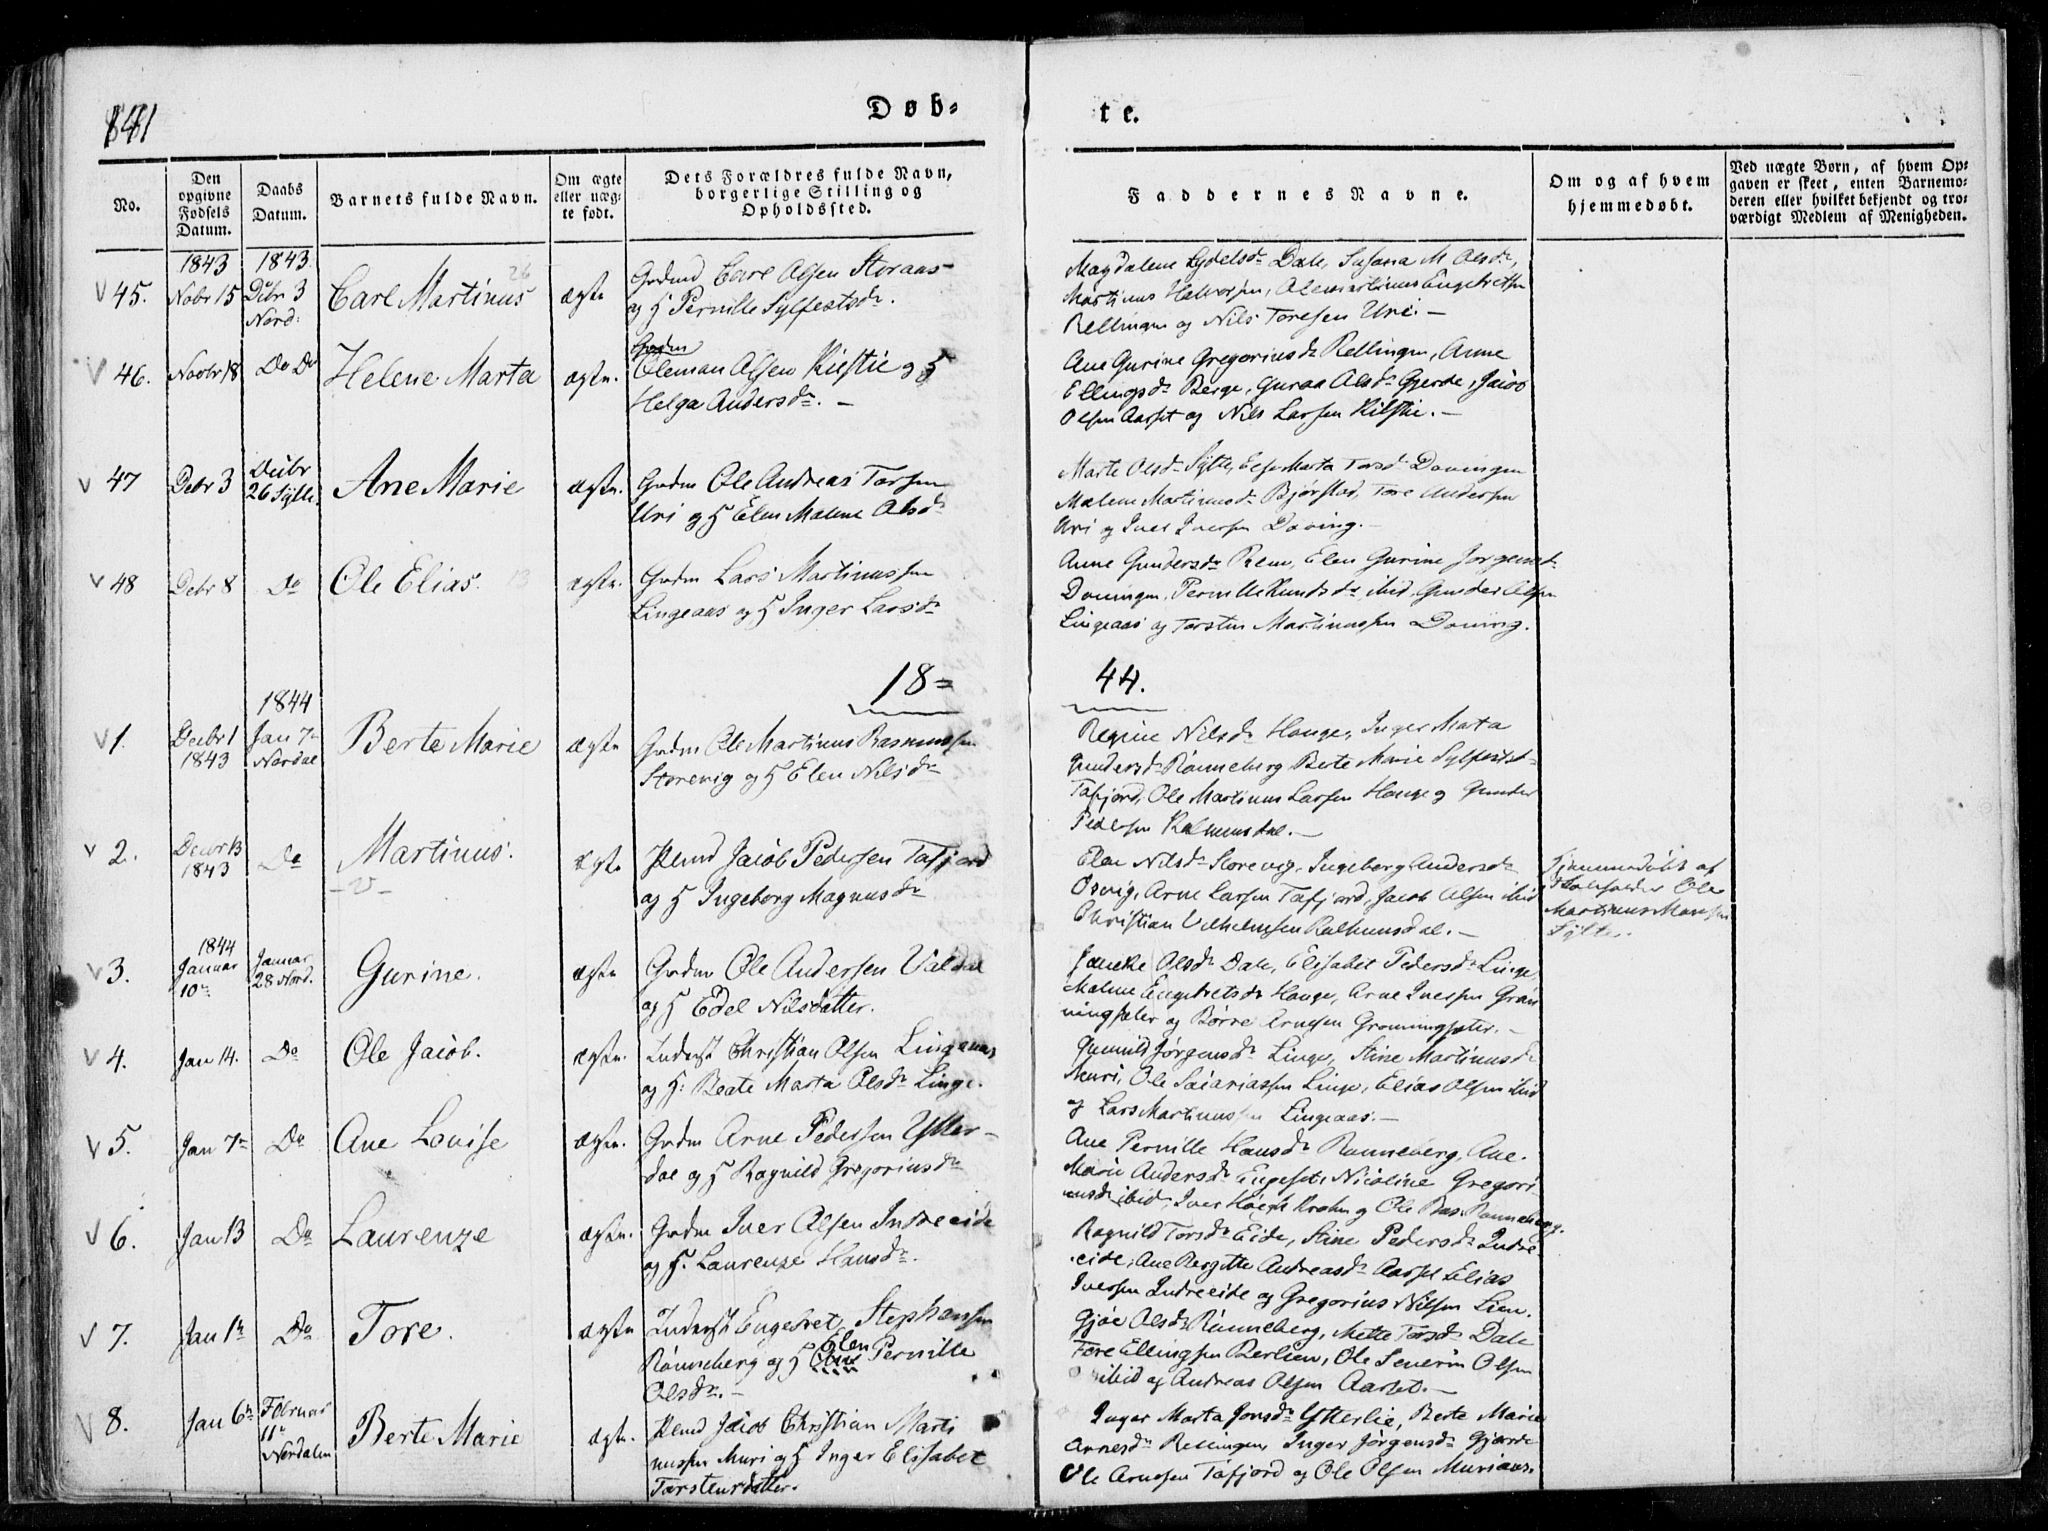 141
Døb-
te.
No.
Den opgivne Fødsels Datum.
Daabs Datum.
Barnets fulde Navn.
Om ægte eller uægte født.
Dets Forældres fulde Navn, borgerlige Stilling og Opholdssted.
Faddernes Navne.
Om og af hvem hjemmedøbt.
Ved uægte Børn, af hvem Opgaven er skeet, enten Barnemoderen eller hvilket bekjendt og troværdigt Medlem af Menigheden.
1843 1843
45. Nobr 15 Debr 3 Nord: Carl Martinus ægte Gaardmd Carl Olsen Storaas
og H Pernille Sylfestsdr.
Magdalene Lydelsdr Dale, Susana M Olsdr,
Martinus Halvorsen, Olemartinus Engebretsen
Rellingen og Nils Toresen Uri. —
46. Novbr 18 Do Do Helene Marta ægte. Gaardm
Oleman Olsen Kilstie og H
Helga Andersdr. —
Ane Gurine Gregoriusdr Rellingen, Anne
Ellingsdr Berge, Guraa Olsdr Gjerde, Jacob
Olsen Aarset og Nils Larsen Kilstie. —
47 Debr 3 Decbr 26 Sylte. Ane Marie ægte. Gaardm Ole Andreas Torsen
Uri og H Elen Malene Olsdr
Marte Olsdr Sylte, Marta Torsdr Dovingen
Malene Martinusdr Bjørstad, Tore Andersen
Uri og Iver Iversen Doving. —
48 Debr 8 Do Ole Elias. ægte. Gaardm Lars Martinussen
Lingeaas og H Inger Larsdr
Anne Gundersdr Rem, Elen Gurine Jørgensdr
Dovingen, Pernille Knudsdr ibid, Gunder Olsen
Lingeaas og Torsten Martinussen Doving.
18=
44.
1844
1. Decbr 1 1843 Jan 7 Nordal Berte Marie ægte Gaardm Ole Martinus Rasmussen
Storevig og H Elen Nilsdr
Regine Nilsdr Hauge, Inger Marta
Gundersdr Rønneberg, Berte Marie Sylfestsdr
Tafjord, Ole Martinus Larsen Hauge og Gunder
Pedersen Kalhunsdal. —
2. Decbr 13 1843 Do Martinus. ægte Plmd Jacob Pedersen Tafjord
og H Ingeborg Magnusdr
Elen Nilsdr Storevig, Ingeborg Andersdr
Osvig, Arne Larsen Tafjord, Jacob Olsen ibid
Christian Vilhelmsen Kalhunsdal. —
Hjemmedøbt af
Skoleholder Ole
Martinus Monsen
Sylte.
1844
3. Januar 10 Januar 28 Nord. Gurine. ægte Gaardm Ole Andersen Valdal
og H Edel Nilsdatter.
Janeke Olsdr Dale, Elisabet Pedersdr Linge,
Malene Engebretsdr Hauge, Arne Iversen Grøn
ningsæter og Børre Arnesen Grønningsæter. —
4. Jan 14. Do Ole Jacob. ægte. Inderst Christian Olsen Lingeaas
og H: Beate Marta Olsdr Linge.
Gunnild Jørgensdr Linge, Stine Martinusdr
Muri, Ole Saiariassen Linge, Elias Olsen ibid
og Lars Martinussen Lingeaas. —
5. Jan 7 Do Ane Louise ægte. Gaardm Arne Pedersen Ytter-
dal og H Ragnild Gregoriusdr
Ane Pernille Hansdr Rønneberg, Ane
Marie Andersdr Engeset, Nicoline Gregori-
usdr ibid, Iver Høegh Krohn og Ole Ras. Rønneberg.
6. Jan 13 Do Laurenze ægte. Gaardm Iver Olsen Indreeide
og H. Laurenze Hansdr.
Ragnild Torsdr Eide, Stine Pedersdr Indre
eide, Ane Bergitte Andreasdr Aarset, Elias
Iversen Indreeide og Gregorius Nilsen Lien.
7. Jan 1 Do Tore. ægte Inderst Engebret Stephansen
Rønneberg og H Elen Pernille
Olsdr. —
Gjøe Olsdr Rønneberg, Mette Torsdr Dale
Tore Ellingsen Berlien, Ole Severin Olsen
ibid og Andreas Olsen Aarset. —
8. Jan 6 Februar 11 Nordalen Berte Marie ægte. Plmd Jacob Christian Marti
nussen Muri og H Inger Elisabet
Torstensdatter.
Inger Marta Jonsdr Ytterlie, Berte Marie
Arnesdr Rellingen, Inger Jørgensdr Gjærde
Ole Arnesen Tafjord og Ole Olsen Muriaas.